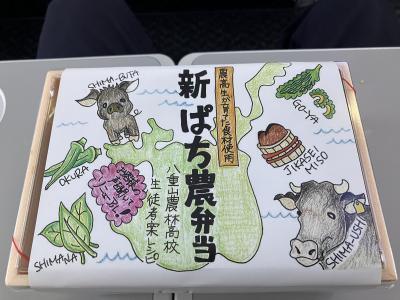 SHIMA-BUTA
農高生が育てた食材使用
新ぱち農弁当
八重山農林高校
生徒考案レシピ
GO-YA
JIKASEI
MISO
OKURA
SHIMANA
SHIMA-USHI